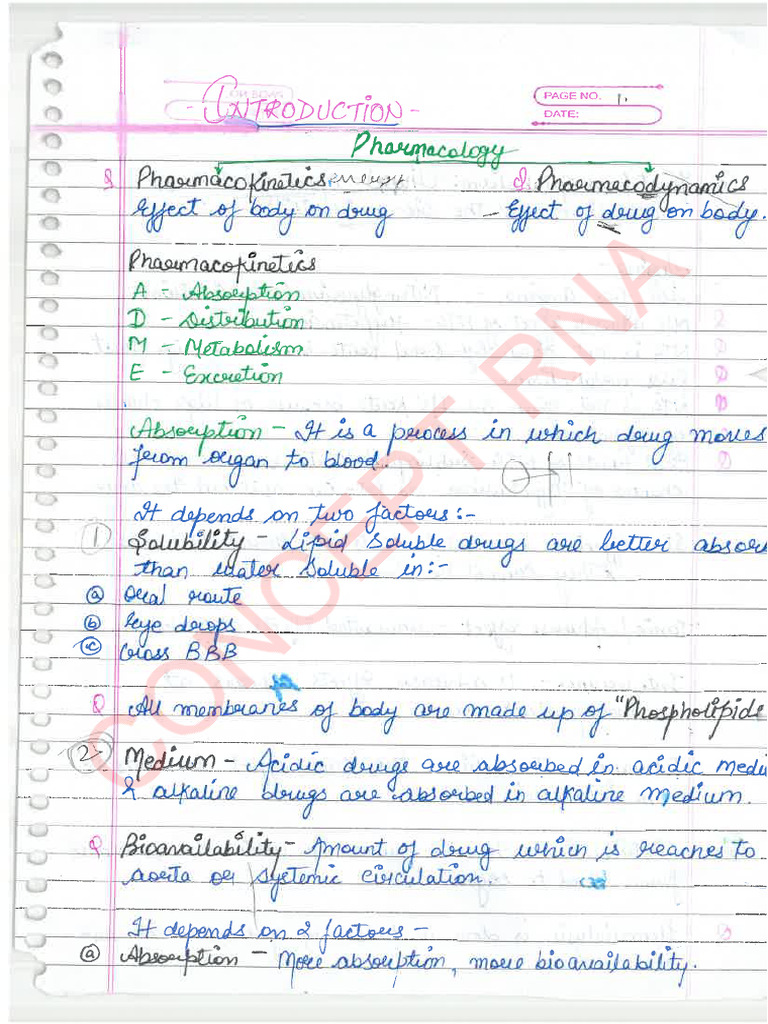 PAGE NO. 1.
DATE:
- INTRODUCTION -
Pharmacology
Pharmacokinetics Pharmacodynamics
Effect of body on drug - Effect of drug on body.
Pharmacokinetics
A - Absorption
D - Distribution
M - Metabolism
E - Excretion
Absorption - It is a process in which drug moves
from organ to blood.
It depends on two factors :-
1 Solubility - Lipid soluble drugs are better absor
than water soluble in :-
a Oral route
b Eye drops
c Cross BBB
Q All membranes of body are made up of "Phospholipids
2 Medium - Acidic drugs are absorbed in acidic medi
& alkaline drugs are absorbed in alkaline medium.
Q Bioavailability - Amount of drug which is reaches to
aorta or systemic circulation.
It depends on 2 factors -
a Absorption - More absorption, more bioavailability.
CONCEPT RNA